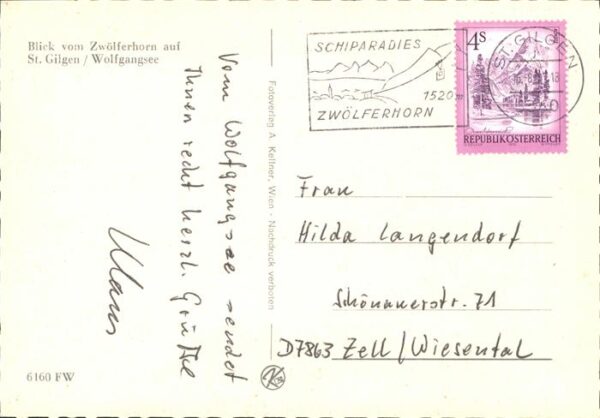 Blick vom Zwölferhorn auf
St. Gilgen / Wolfgangsee
Vom Wolfgangsee sendet
Ihnen recht herzl. Grüße
Klaus
6160 FW
Fotoverlag A. Kettner, Wien - Nachdruck verboten
SCHIPARADIES
1520 m
ZWÖLFERHORN
ST. GILGEN
4S
REPUBLIK ÖSTERREICH
Frau
Hilda Langendorf
Schönauerstr. 71
D7863 Zell/Wiesental